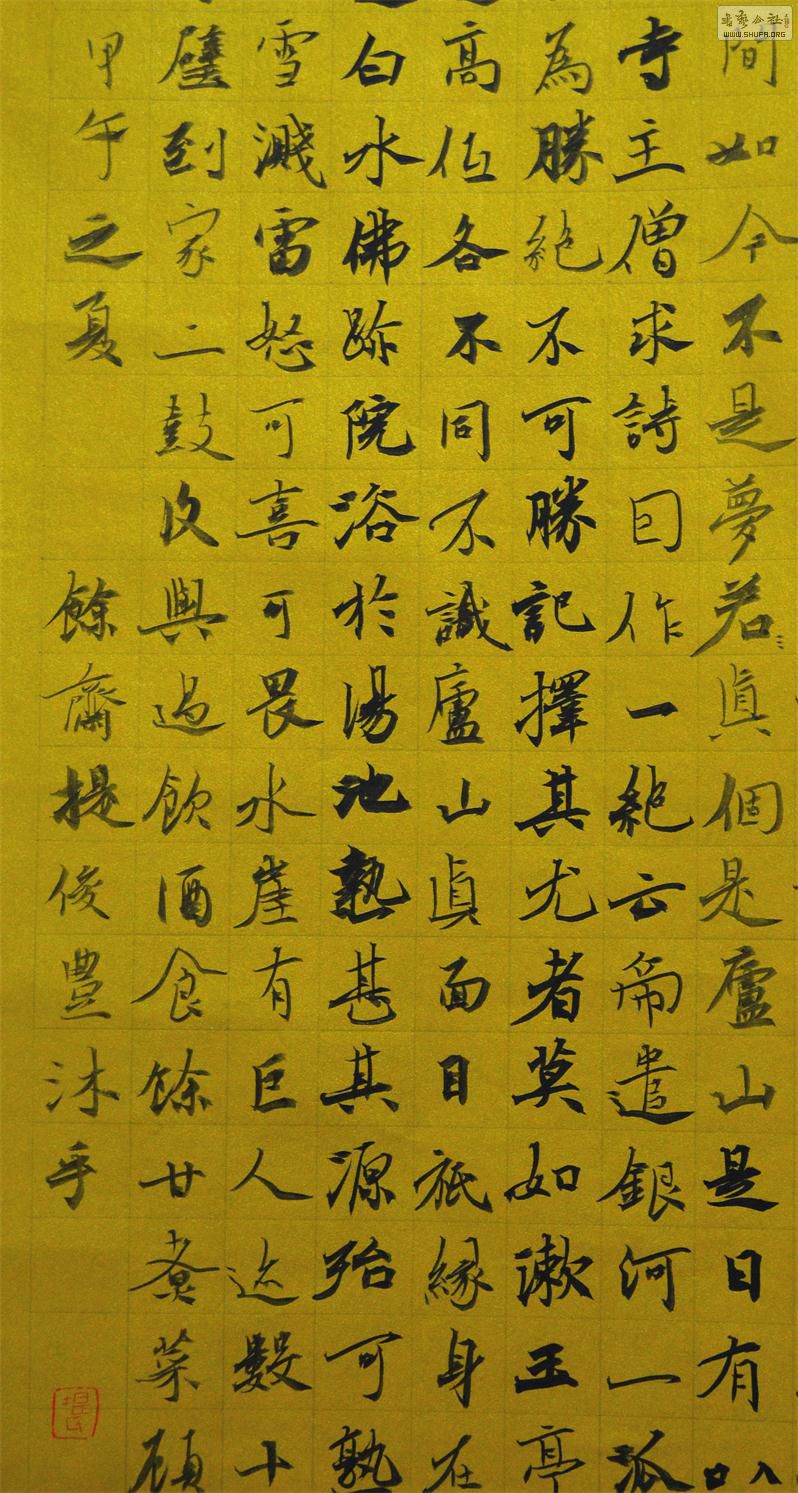 間如今不是夢若真個是廬山是日有
寺主僧求詩曰作一絕云帝遣銀河一派
為勝絕不可勝記擇其尤者莫如漱玉亭
高低各不同不識廬山真面目祇緣身在
白水佛跡院浴於湯池熱甚其源殆可熟
雪濺雷怒可喜可畏水崖有巨人迹數十
璧到家二鼓復與過飲酒食餘甘煮菜顧
甲午之夏 餘齋提俊豐沐手
WWW.SHUFA.ORG